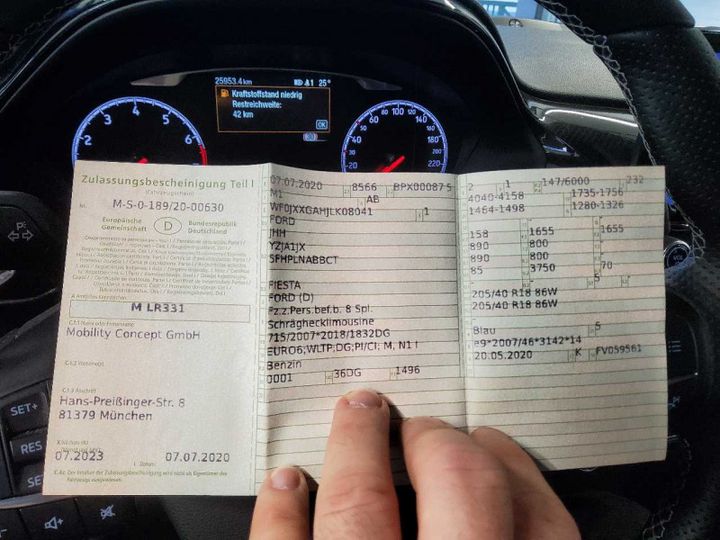 25953.4 km 1 25°
Kraftstoffstand niedrig
Restreichweite:
42 km
OK
2 3 4 5 6
20 40 60 80 100 120 140 180 200 220
Zulassungsbescheinigung Teil I
(Fahrzeugschein)
Nr. M-S-0-189/20-00630
Europäische Gemeinschaft
D
Bundesrepublik Deutschland
M LR331
Mobility Concept GmbH
Hans-Preißinger-Str. 8
81379 München
07.2023 07.07.2020
C.4c Der Inhaber der Zulassungsbescheinigung wird nicht als Eigentümer des
Fahrzeugs ausgewiesen.
07.07.2020 8566 BPX00087 5
M1 AB
WF0JXXGAHJLK08041 1
FORD
JHH
YZJA1JX
5FHPLNABBCT
FIESTA
FORD (D)
Fz.z.Pers.bef.b. 8 Spl.
Schräghecklimousine
715/2007*2018/1832DG
EURO6;WLTP;DG;PI/CI; M, N1 I
Benzin
0001 36DG 1496
2 1 147/6000 232
4040-4158 1735-1756
1464-1498 1280-1326
158 1655 1655
890 800
890 800
85 3750 70
5
205/40 R18 86W
205/40 R18 86W
Blau 5
e9*2007/46*3142*14
20.05.2020 K FV059561
SET+
RES